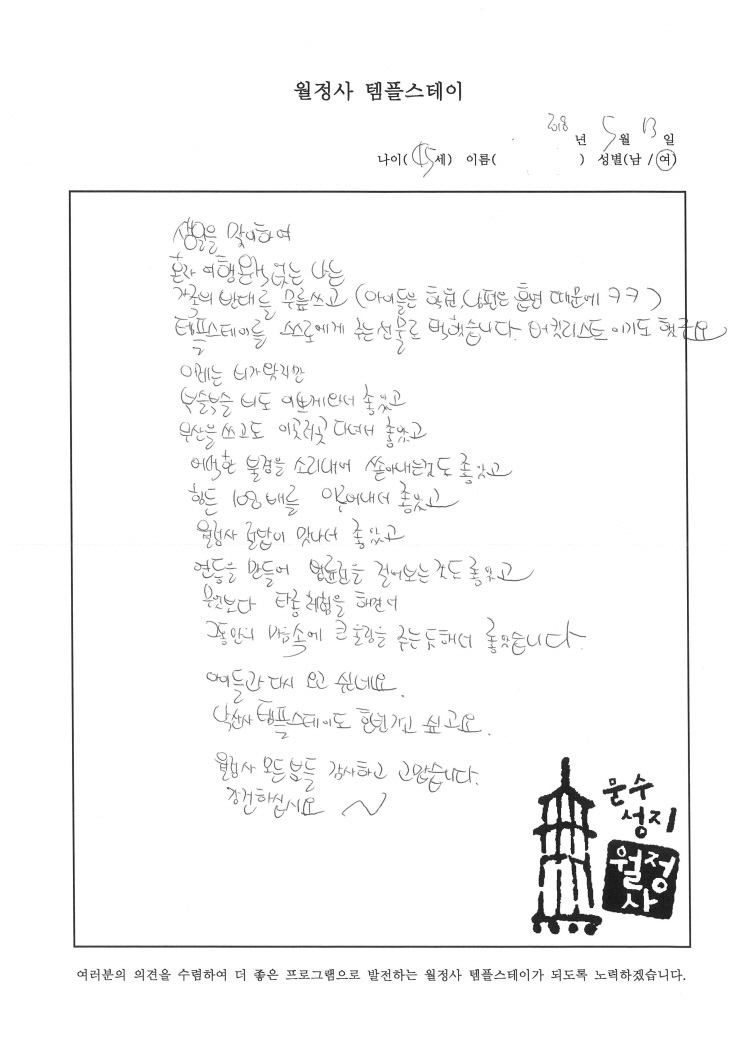 월정사 템플스테이
2018 년 5 월 13 일
나이( 45 세) 이름( ) 성별(남 / 여)
생일을 맞이하여
혼자 여행 한번 없는 나는
가족의 반대를 무릅쓰고 (아이들은 학원, 남편은 훈련 때문에 ㅋㅋ)
템플스테이를 스스로에게 주는 선물로 택했습니다. 버킷리스트 이기도 했구요
어제는 비가 왔지만
부슬부슬 비도 이쁘게 와서 좋았고
우산을 쓰고도 이곳저곳 다녀서 좋았고
어색한 불경을 소리내어 쏟아내는 것도 좋았고
힘든 108배를 이루어내서 좋았고
월정사 절밥이 맛나서 좋았고
연등을 만들어 법륜전을 걸어보는 것도 좋았고
무엇보다 타종체험을 하면서
그동안의 마음속에 큰 울림을 주는 듯해서 좋았습니다.
아이들과 다시 오고 싶네요.
낙산사 템플스테이도 한번 가고 싶고요.
월정사 모든 분들 감사하고 고맙습니다.
강건하십시요 ~
문수
성지
월정
사
여러분의 의견을 수렴하여 더 좋은 프로그램으로 발전하는 월정사 템플스테이가 되도록 노력하겠습니다.